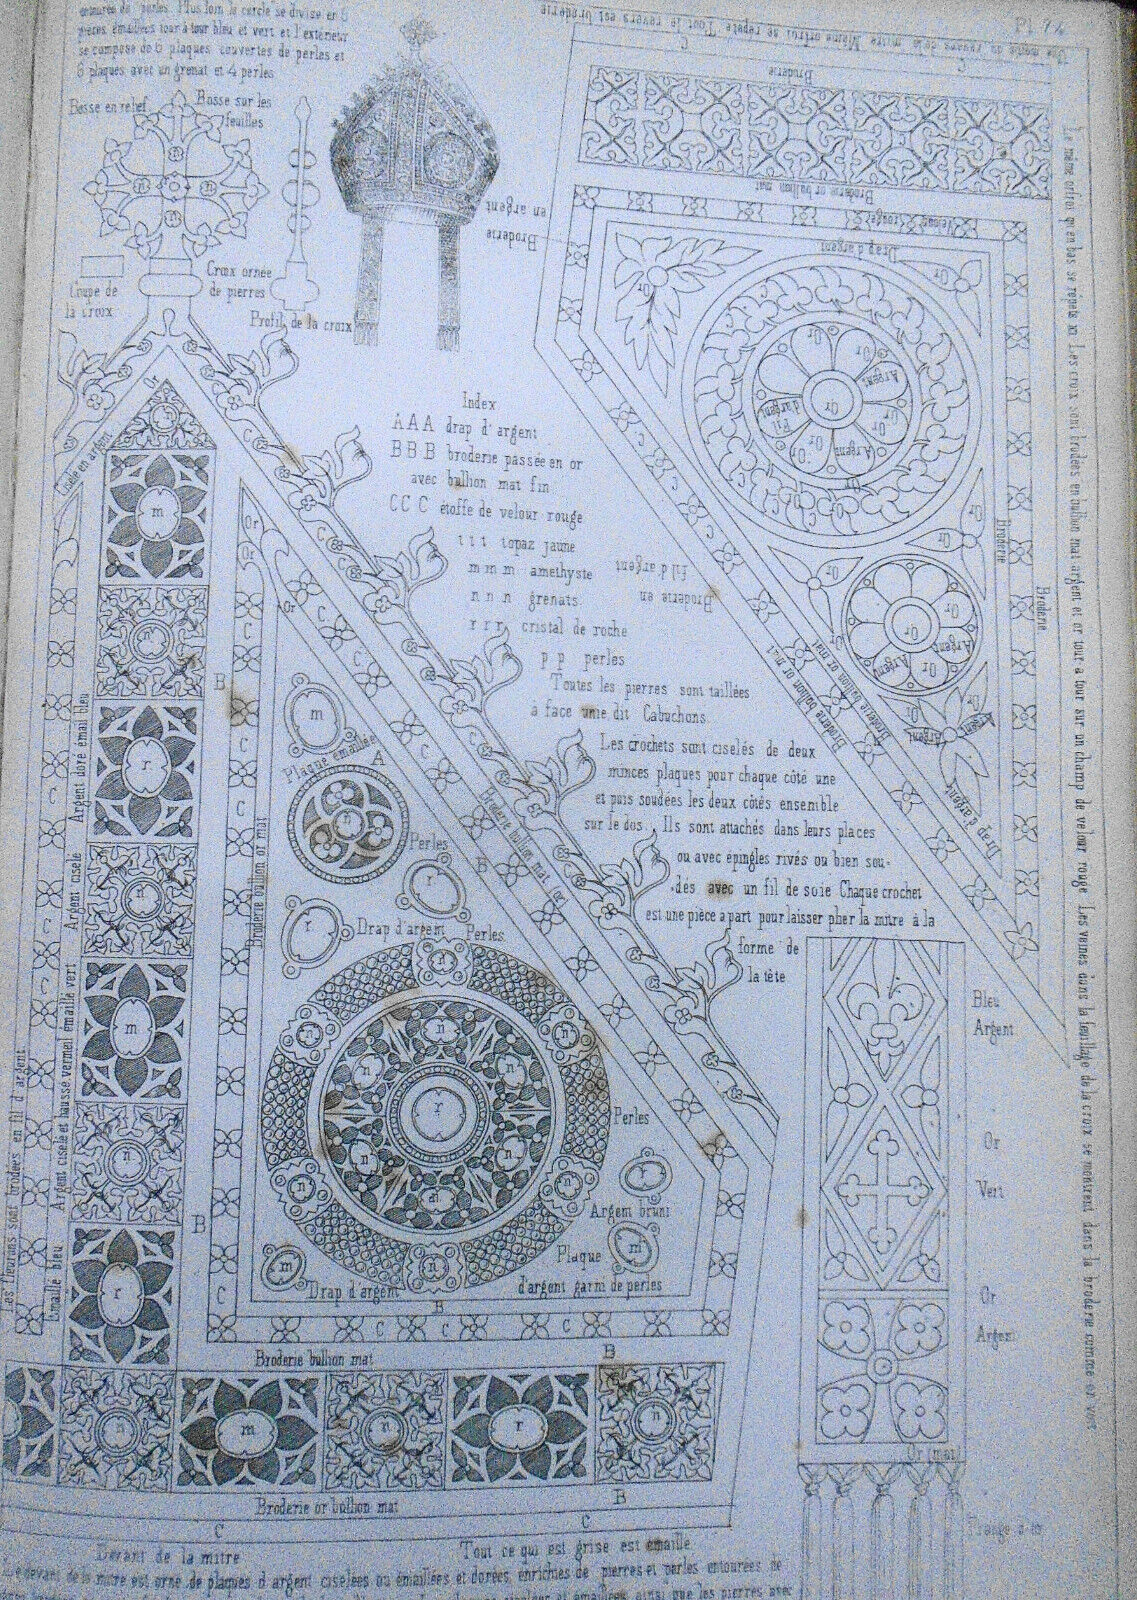 entourées de perles. Plus loin le cercle se divise en 6
pièces émaillées tour à tour bleu et vert et l'exterieur
se compose de 6 plaques couvertes de perles et
6 plaques avet un grenat et 4 perles
Pl. 74
Une moitié du revers de la mitre
C
C
Broderie
Basse en relief
Bosse sur les
feuilles
Coupe de
la croix
Croix ornée
de pierres
Profil de la croix
en argent
Broderie
Broderie or bullion mat
Velour rouge
Drap d'argent
Or
Or
Or
Argent
Fil
d'argent
Index
A A A drap d'argent
B B B broderie passée en or
avec bullion mat fin
C C C étoffe de velour rouge
t t t topaz jaune
m m m amethyste
n n n grenats
r r r cristal de roche
p p perles
Toutes les pierres sont taillées
à face unie dit Cabuchons
Les crochets sont ciselés de deux
minces plaques pour chaque côté une
et puis soudées les deux côtés ensemble
sur le dos. Ils sont attachés dans leurs places
ou avec épingles rivés ou bien sou-
dés avec un fil de soie Chaque crochet
est une pièce a part pour laisser plier la mitre à la
forme de
la tête
Broderie en
fil d'argent
Broderie bullion or mat
Broderie bullion or mat
Drap d'argent
Broderie
Broderie
Ciselé en argent
Or
Or
Or
m
n
B
r
Argent doré émail bleu
Argent ciselé
Argent ciselé et haussé vermeil émaillé vert
Emaille bleu
Les fleurons sont brodées en fil d'argent
Broderie bullion or mat
Broderie bullion mat (or)
m
Plaque émaillée
A
n
Perles
r
r
Drap d'argent
Perles
Perles
r
Argent bruni
Plaque
m
d'argent garni de perles
m
Drap d'argent
B
C
Broderie bullion mat
B
n
m
n
r
n
Broderie or bullion mat
B
C
C
Bleu
Argent
Or
Vert
Or
Argent
Or (mat)
Frange d'or
Le même ofroi qu'en bas se répète ici Les croix sont brodets en bullion mat argent et or tour a tour sur un champ de velour rouge Les veines dans la feuillage de la croix se montrent dans la broderie comme ci voir
Devant de la mitre
Tout ce qui est grise est emaille
Le devant de la mitre est orné de plaques d'argent ciselées ou émaillées et dorées, enrichies de pierres et perles entourées de